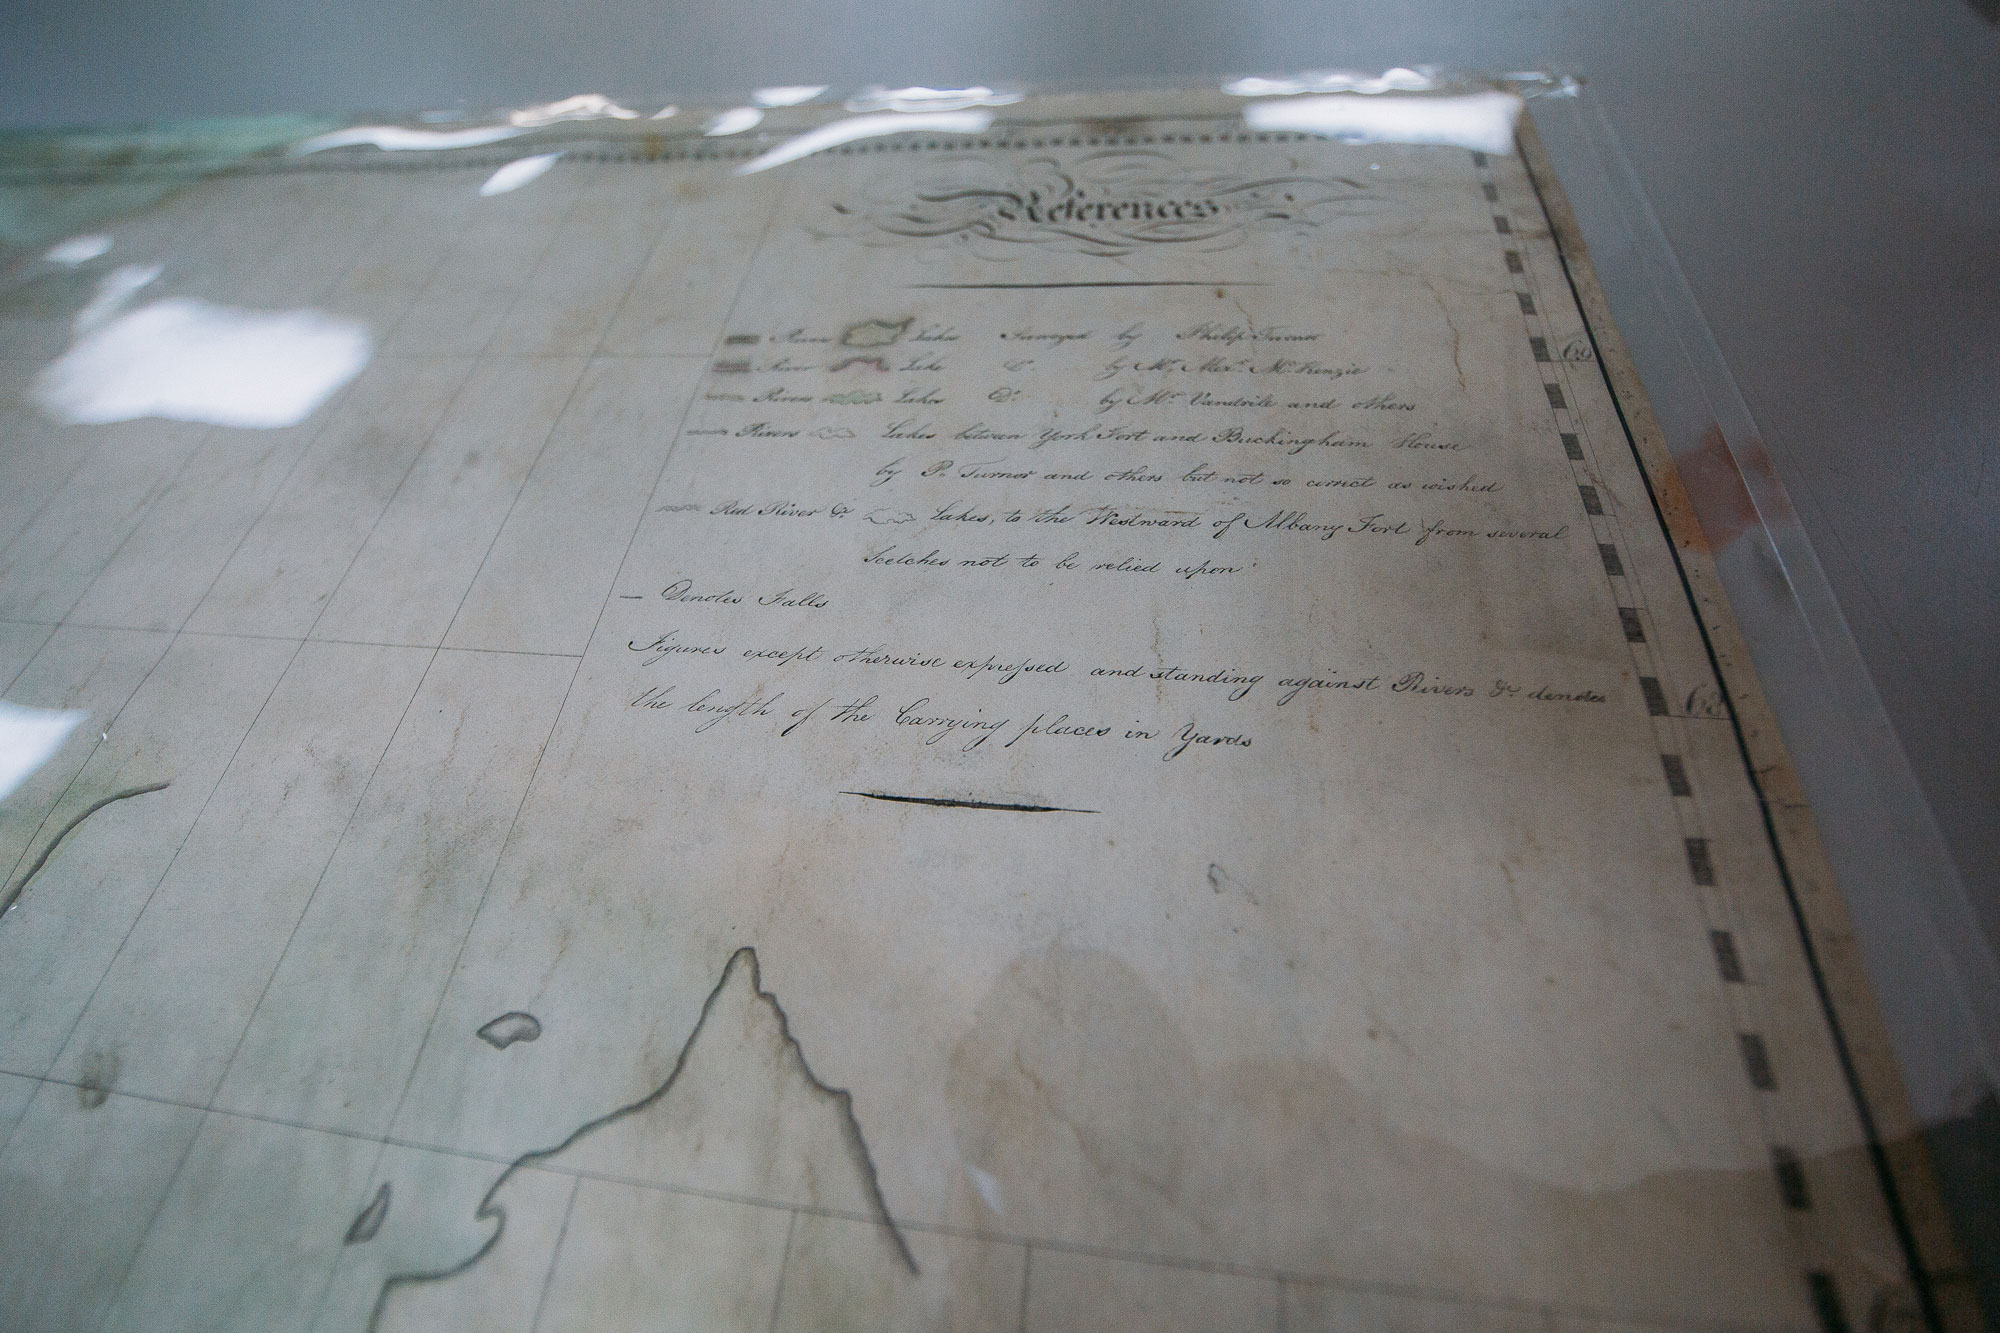 References
River Lakes Surveyed by Philip Turnor
River Lake Do. by Mr. Alexr. McKenzie
Rivers Lakes Do. by Mr. Vandrile and others
Rivers Lakes between York Fort and Buckingham House
by P. Turnor and others but not so correct as wished
Red River &c. Lakes, to the Westward of Albany Fort from several
Scetches not to be relied upon
— Denotes Falls
Figures except otherwise expressed and standing against Rivers &c. denotes
the length of the Carrying places in Yards
63